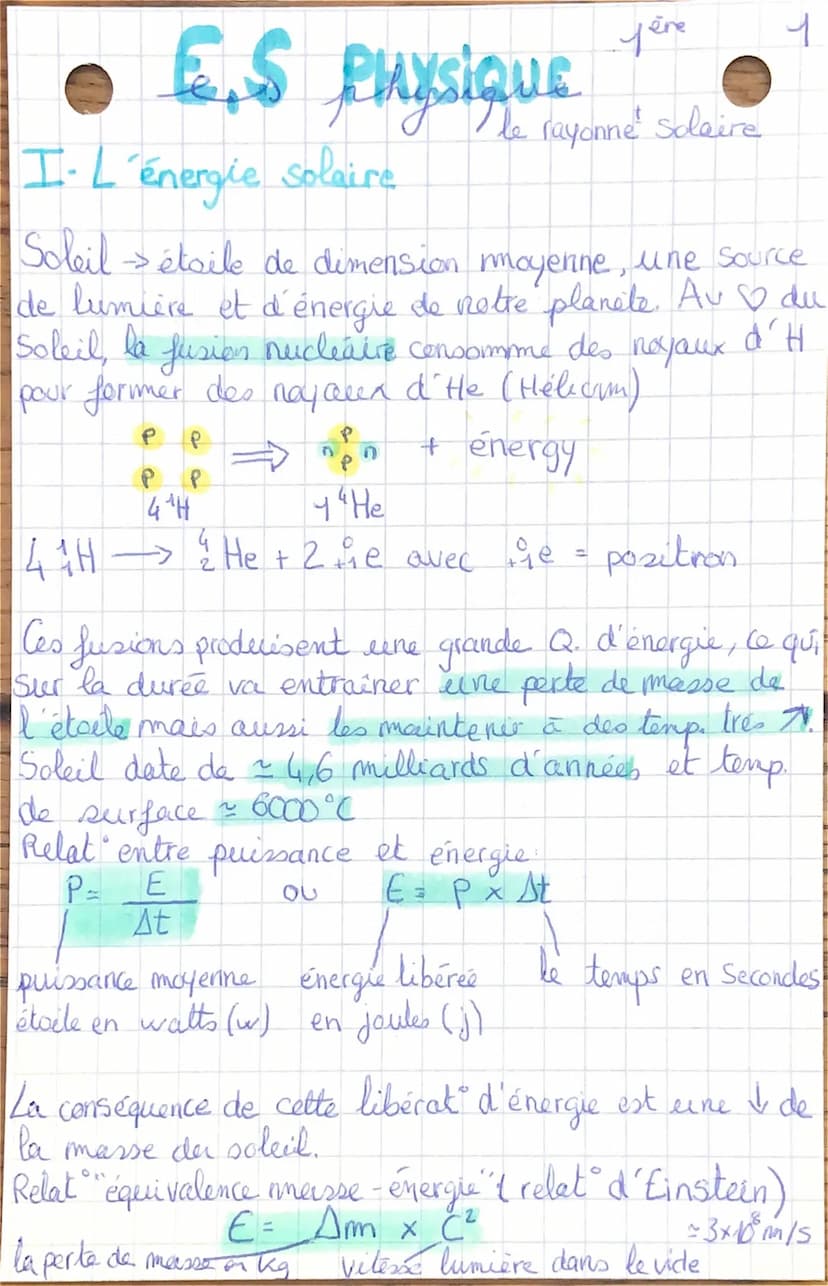 1ère 1
E.S PHYSIQUE
e.s physique
le rayonnet solaire
I- L'énergie solaire
Soleil → étoile de dimension moyenne, une source
de lumière et d'énergie de notre planète. Au ♡ du
Soleil, la fusion nucléaire consomme des noyaux d'H
pour former des noyaux d'He (Hélium)
P P P
n n + énergy
P P P
4 ¹H 1 ⁴He
4 ¹₁H → ⁴₂He + 2 ⁰₊₁e avec ⁰₊₁e = pozitron
Ces fusions produisent une grande Q. d'énergie, ce qui,
sur la durée va entrainer une perte de masse de
l'étoile mais aussi les maintenir à des temp. très ↗.
Soleil date de ≃ 4,6 milliards d'années et temp.
de surface ≃ 6000°C
Relat° entre puissance et énergie:
P = E/Δt ou E = P x Δt
puissance moyenne énergie libérée le temps en secondes
étoile en watts (w) en joules (j)
La conséquence de cette libérat° d'énergie est une ↓ de
la masse du soleil.
Relat° "équivalence masse-énergie" (relat° d'Einstein)
E = Δm x C² ≃3x10⁸ m/s
la perte de masse en kg vitesse lumière dans le vide